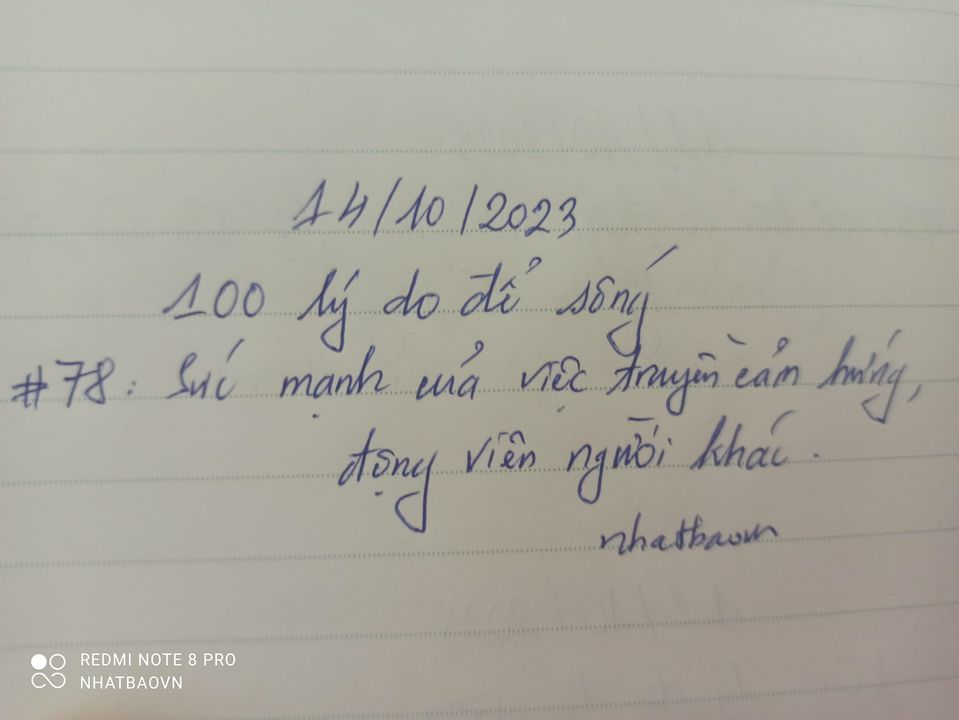 14/10/2023
100 lý do để sống
#78: Sức mạnh của việc truyền cảm hứng,
động viên người khác.
nhatbaovn
REDMI NOTE 8 PRO
NHATBAOVN